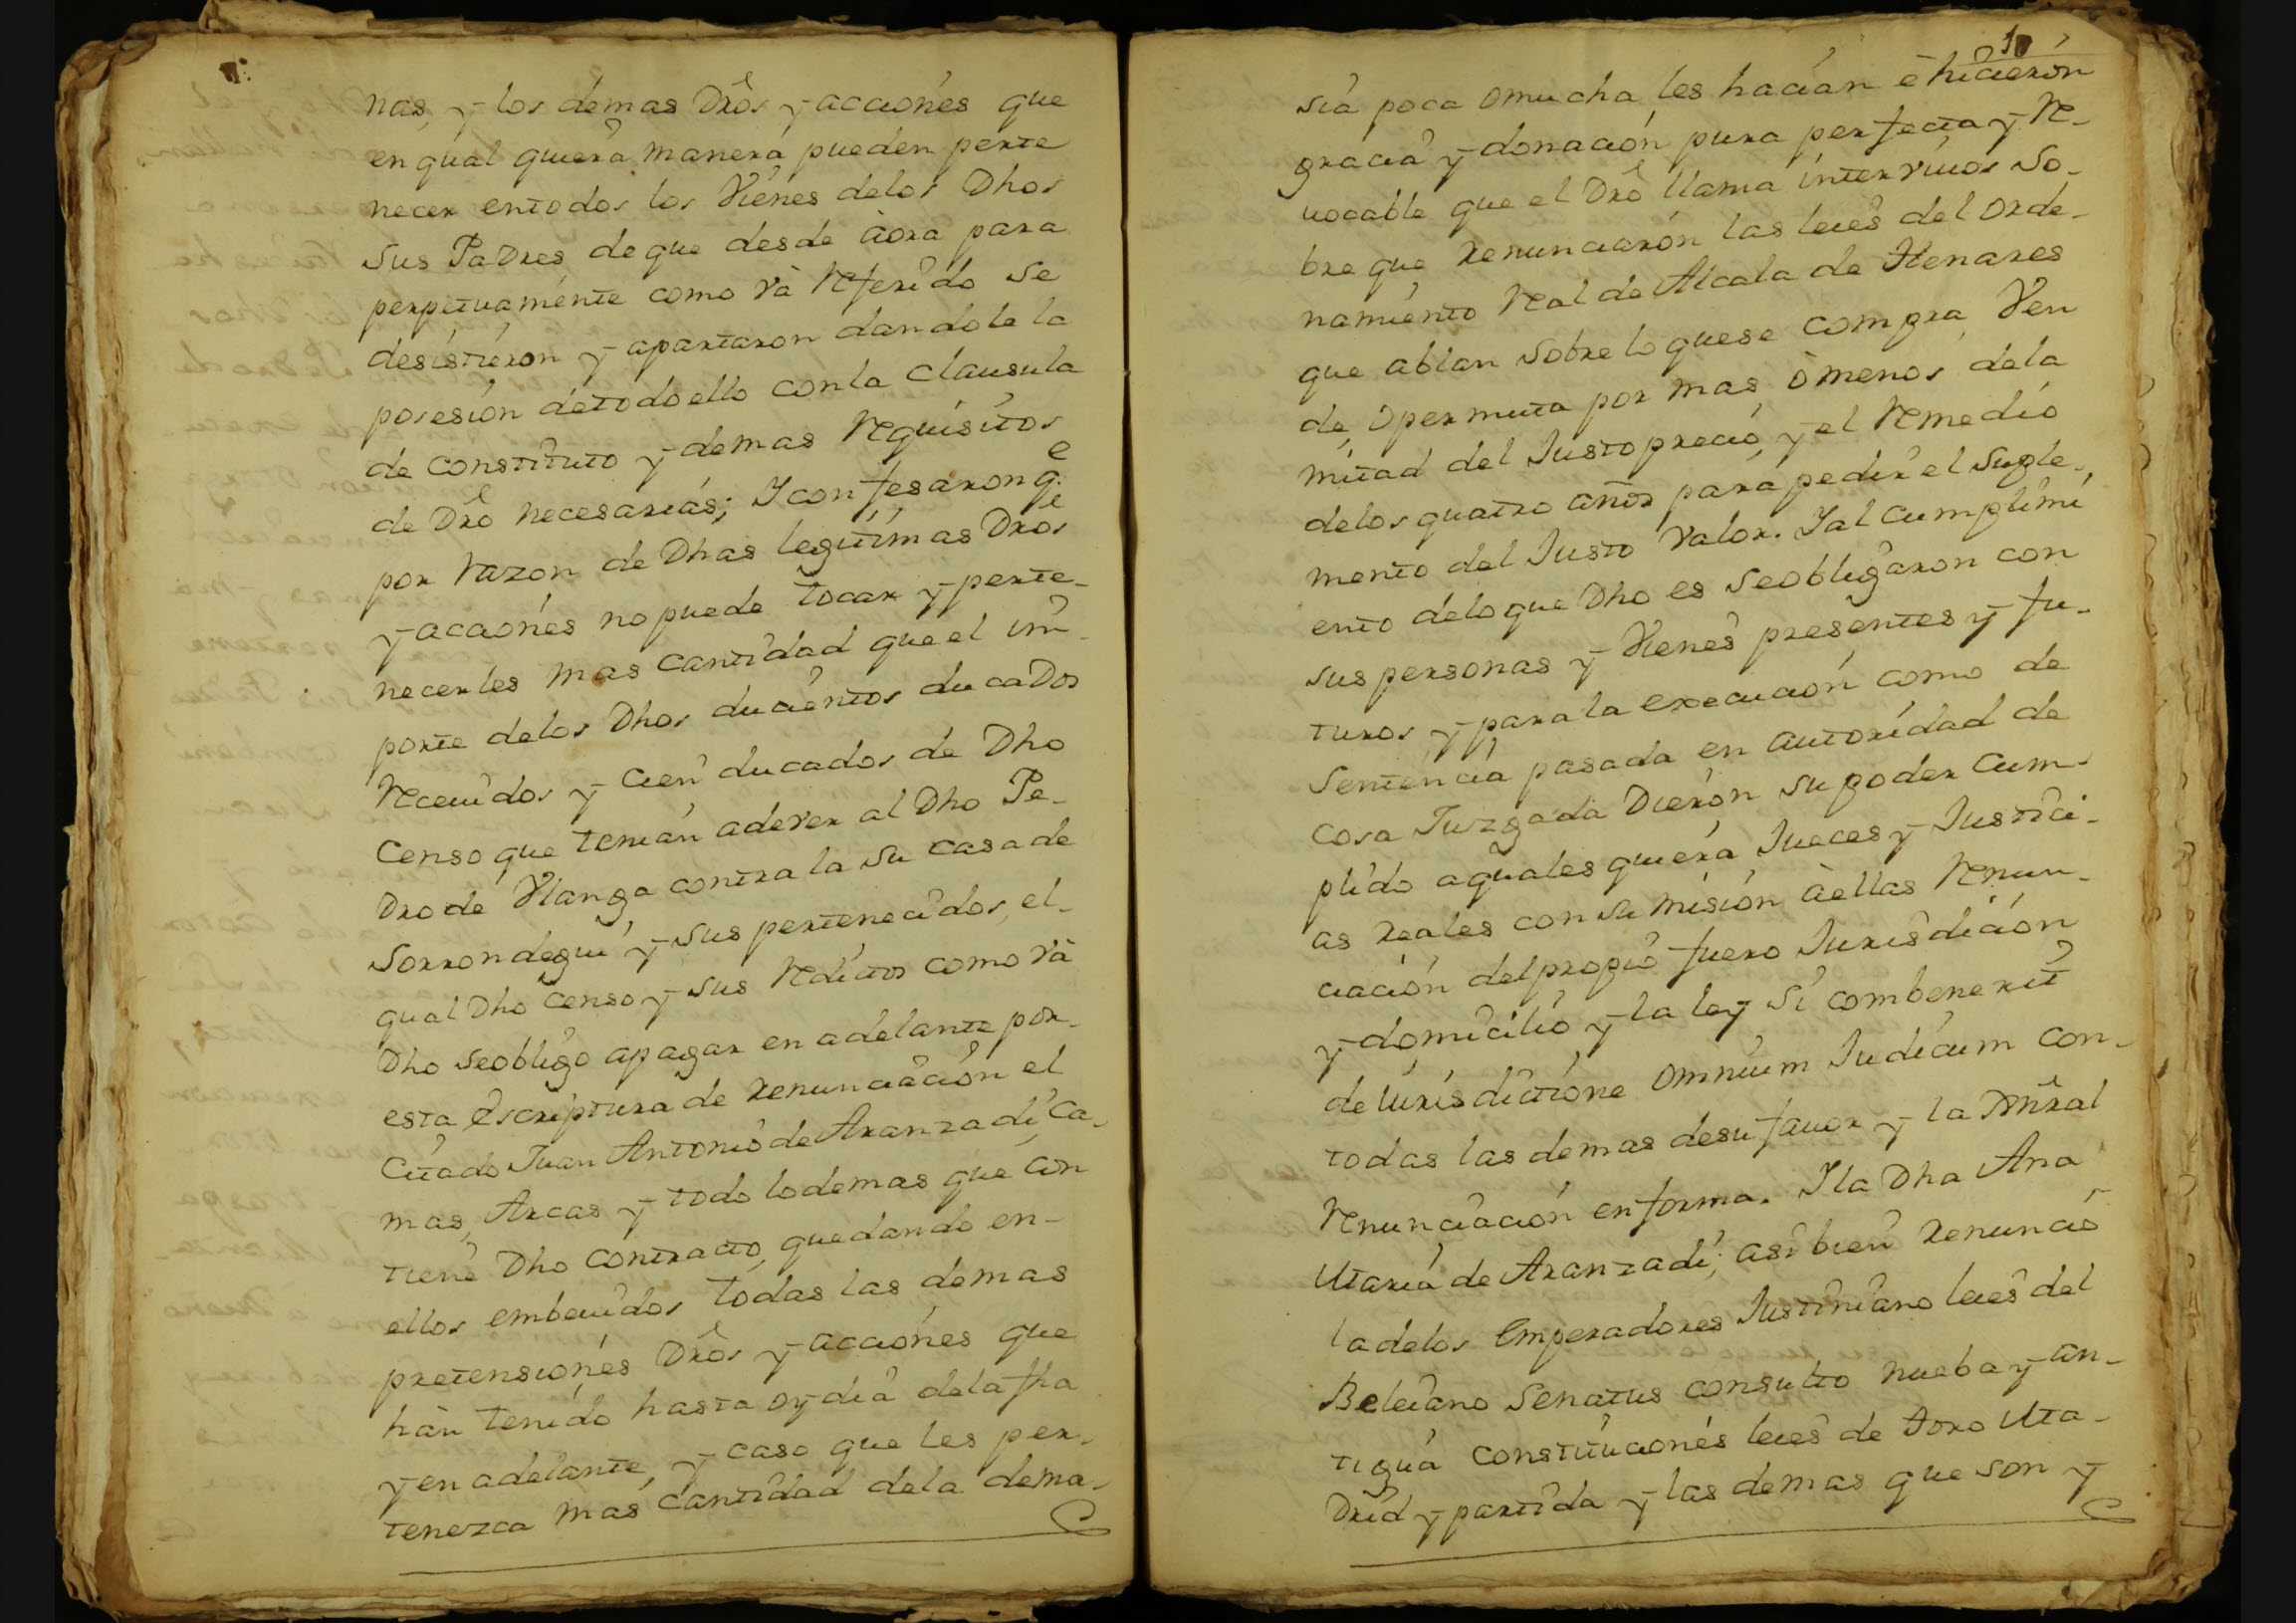 nas, y los demas Drôs y acciones que
en qual quiera manera pueden perte
necer entodos los Vienes delos Dhos
sus Padres, de que desde àora para
perpetuamente como và Referido se
desistieron y apartaron dandole la
posesion detodoello conla clausula
de constituto y demas Requisitos
de Drô necesarias; Iconfesaron q.e
por Razon de Dhas legitimas Drôs
y acciones no puede tocar y perte-
necerles mas cantidad que el im-
porte delos Dhos ducientos ducaDos
Receuidos y cien ducados de Dho
Censo que tenian adever al Dho Pe-
Dro de Vlanga contra la su casa de
Sorrondegui y sus pertenecidos, el-
qual Dho censo y sus Reditos como và
Dho seobligo apagar en adelante por-
esta escriptura de Renunciacion el
Citado Juan Antonio de Aranzadi, Ca-
mas, Arcas y todo lodemas que con
tiene Dho contracto, quedando en-
ellos embeuidos todas las demas
pretensiones Drôs y acciones que
hàn tenido hasta oydia dela fha
y en adelante, y caso que les per-
tenezca mas cantidad dela dema-
10
sia poca omucha les hacian è hicieron
gracia y donacion pura perfecta y Re-
uocable que el Drô llama interviuos So-
bre que Renunciaron las leies del Orde-
namiento Real de Alcala de Henares
que ablan sobre lo quese compra, Ven
de, Opermuta por mas òmenos dela
mitad del Justo precio, y el Remedio
delos quatro años para pedir el suple-
mento del Justo Valor. Ial Cumplimi
ento delo que Dho es seobligaron con
sus personas y Vienes presentes y fu-
turos y para la execucion como de
Sentencia pasada en autoridad de
Cosa Juzgada Dieron su poder Cum-
plido aquales quiera Jueces y Justici-
as Reales con su mision àellas Renun-
ciacion del propio fuero Jurisdicion
y domicilio y la ley si combenerit
de iurisdictione omnium Judicum con-
todas las demas desu fauor y la Gñral
Renunciacion en forma. Ila Dha Ana
Maria de Aranzadi; asi bien Renuncio
la delos Emperadores Justiniano leies del
Beleiano Senatus consulto nueba y an-
tigua constituciones leies de toro Ma-
Drid y partida y las demas que son y